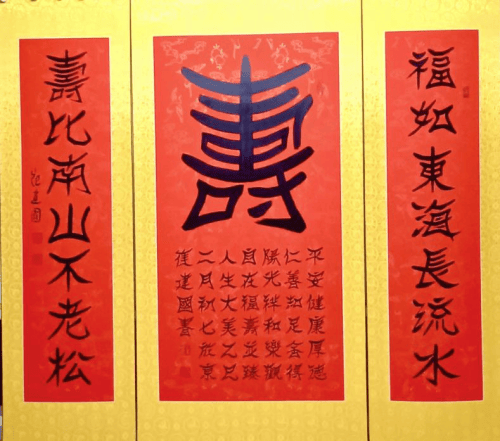 福如東海長流水
壽
平安健康厚德
仁善知足舍得
陽光祥和樂觀
自在福壽並臻
人生大美乙巳
二月初七於京
崔建國書
壽比南山不老松
建國